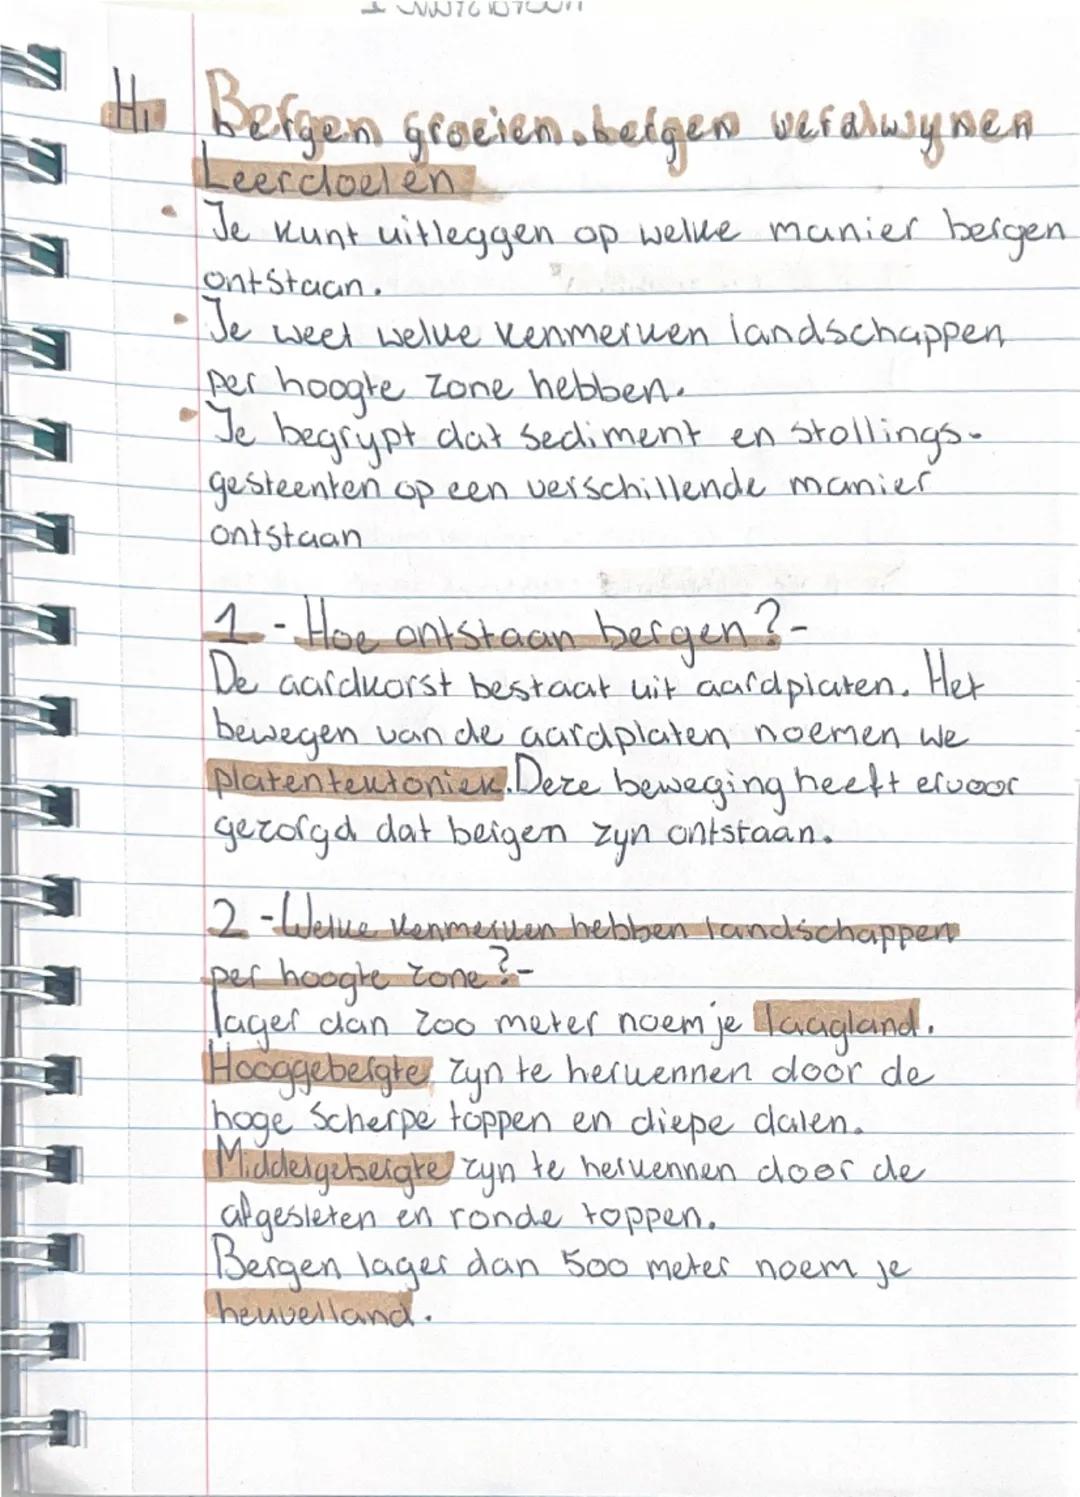 H1 Bergen groeien, bergen verdwynen
Leerdoelen
• Je kunt uitleggen op welke manier bergen
ontstaan.
• Je weet welke kenmerken landschappen
per hoogte zone hebben.
• Je begrypt dat sediment en stollings-
gesteenten op een verschillende manier
ontstaan
1 - Hoe ontstaan bergen? -
De aardkorst bestaat uit aardplaten. Het
bewegen van de aardplaten noemen we
platentektoniek. Deze beweging heeft ervoor
gezorgd dat bergen zyn ontstaan.
2 - Welke kenmerken hebben landschappen
per hoogte zone? -
lager dan 200 meter noem je laagland.
Hooggebergte zyn te herkennen door de
hoge scherpe toppen en diepe dalen.
Middelgebergte zyn te herkennen door de
afgesleten en ronde toppen.
Bergen lager dan 500 meter noem je
heuvelland.